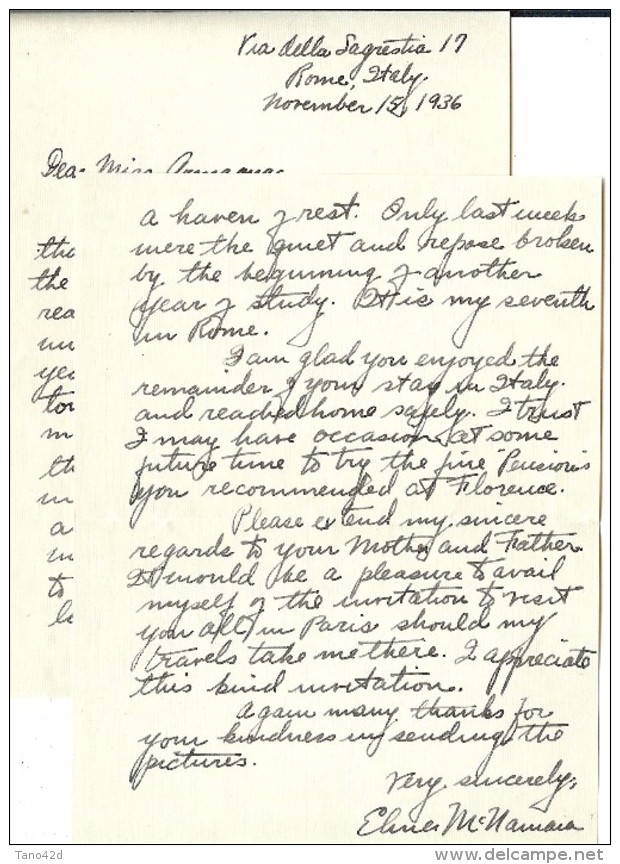 Via della Sagrestia 17
Rome, Italy.
November 15, 1936
Dear Miss
tha
the
rea
un
yea
tor
m
th
in
a
in
to
le
a haven of rest. Only last week
were the quiet and repose broken
by the beginning of another
year of study. It is my seventh
in Rome.
I am glad you enjoyed the
remainder of your stay in Italy.
and reached home safely. I trust
I may have occasion at some
future time to try the fine "Pension"
you recommended at Florence.
Please extend my sincere
regards to your Mother and Father.
It would be a pleasure to avail
myself of the invitation to visit
you all in Paris should my
travels take me there. I appreciate
this kind invitation.
Again many thanks for
your kindness in sending the
pictures.
Very sincerely,
Elmer McNamara
Tano42d
delcampe.net